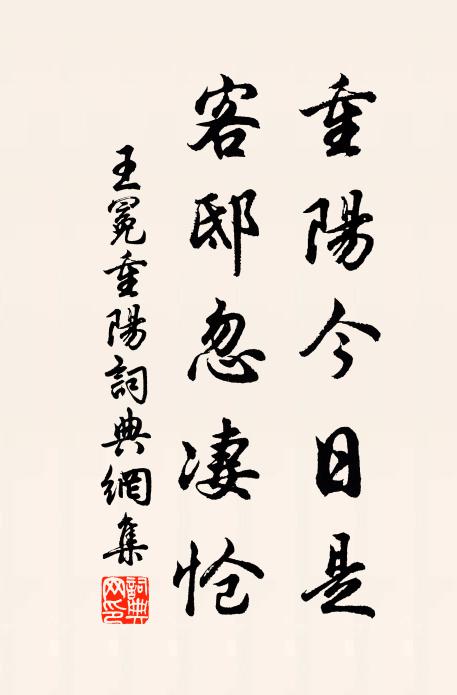 重陽今日是
客邸忽凄怆
王冕重陽詞典網集
詞典網印